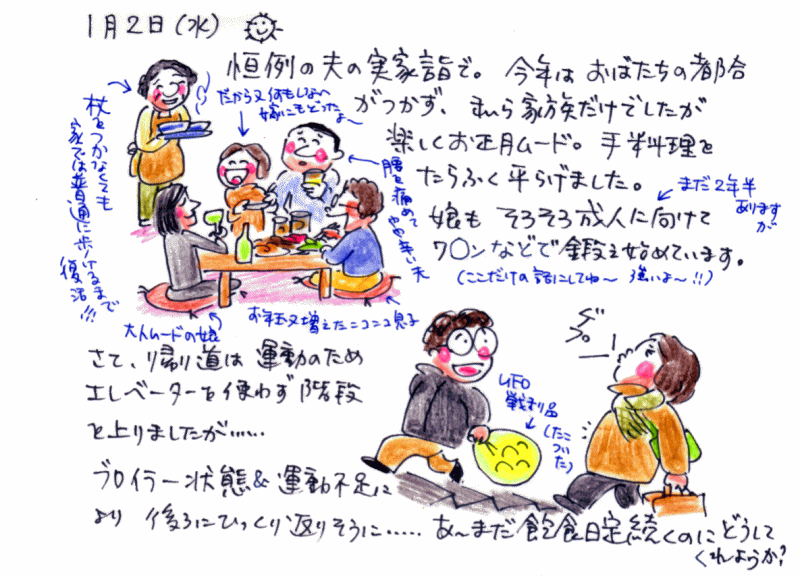 1月2日(水)
恒例の夫の実家詣で。 今年は おばたちの都合
がつかず、私ら家族だけでしたが
楽しくお正月ムード。手料理を
たらふく平らげました。
娘も そろそろ成人に向けて
ワ〇ンなどで鍛え始めています。
(ここだけの話にしてね〜 強いよ〜!!)
まだ2年半
ありますが
だから又何もしない
嫁にもどったよ〜
杖をつかなくても
家では普通に歩けるまで
復活!!!
腰を痛めて
やや辛い夫
大人ムードの娘
お年玉又増えたニコニコ息子
さて、帰り道は 運動のため
エレベーターを使わず階段
を上りましたが……
UFO
戦利品
(たこ
ついた)
ゼ
ブロイラー状態&運動不足に
より 後ろにひっくり返りそうに…… あ〜まだ飲食日程続くのにどうして
くれようか?